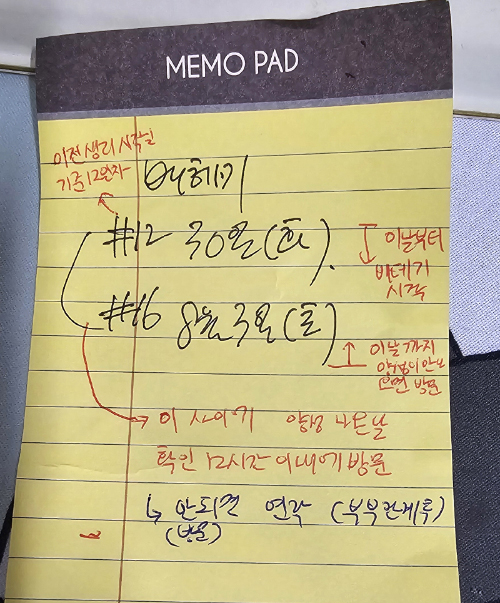 MEMO PAD
이전 생리 시작일
기준 12일차
배테기
#12 30일(화)
이날부터
배테기
시작
#16 8월 3일(토)
이날까지
양성이 안보
으면 방문
이 사이에 양성 나온날
확인 12시간 이내에 방문
↳ 안되면 연락 (부부관계 후)
(방문)